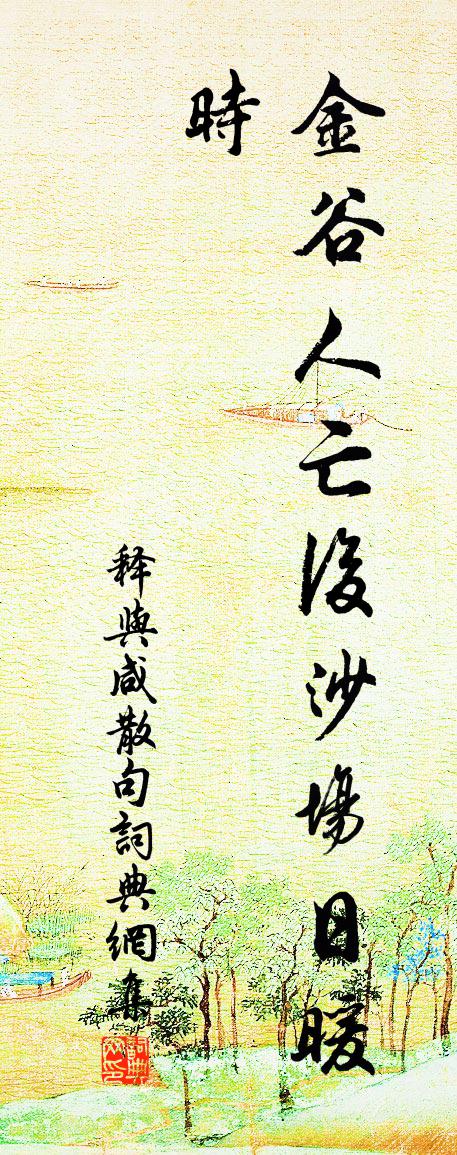 金谷人亡後沙場日暖
時
释與咸散句詞典網集